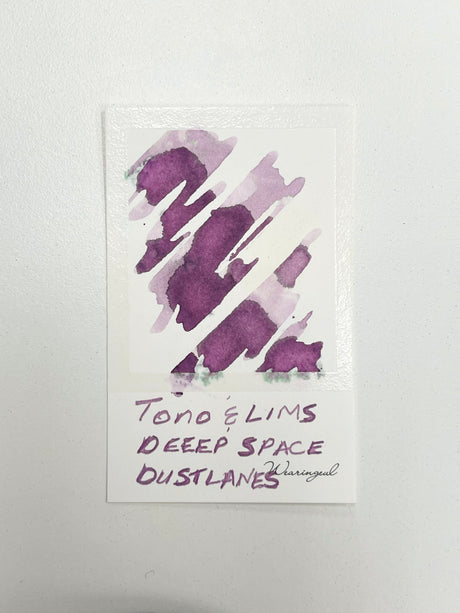 Tono & LIMS
DEEEP SPACE
DUSTLANES
Wearingeul